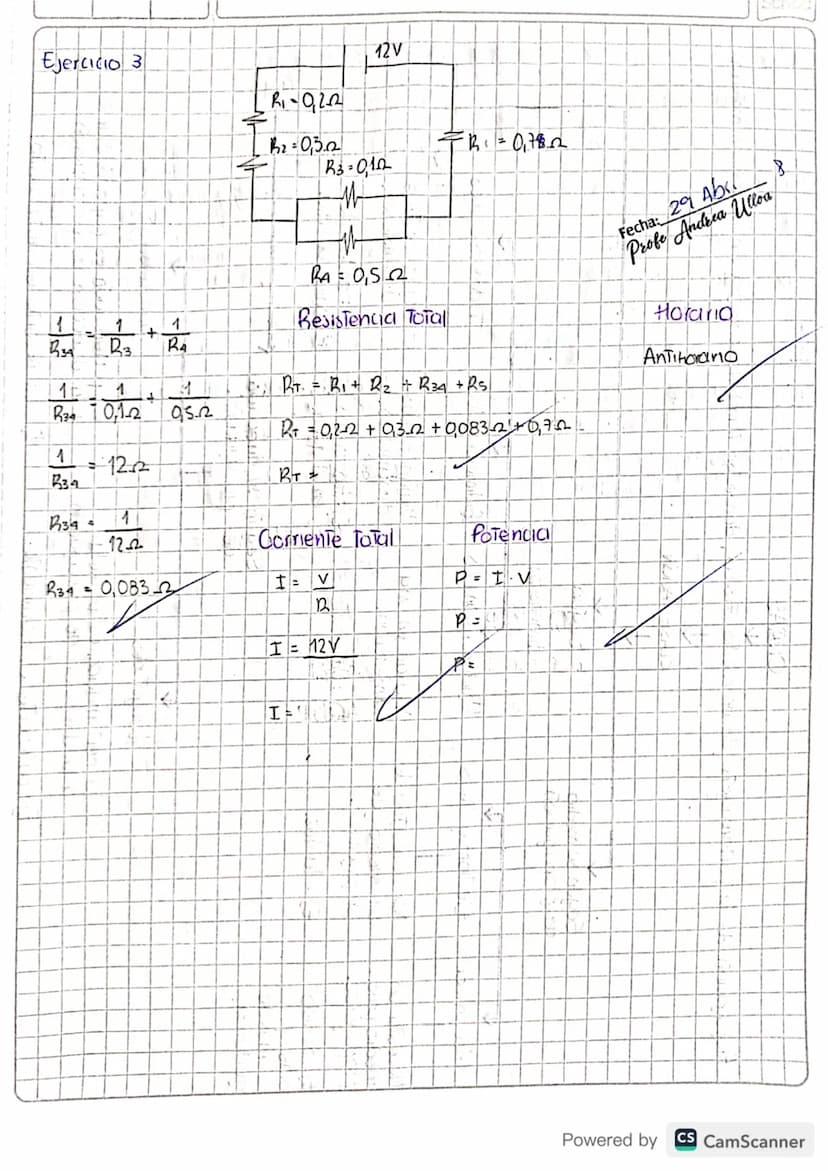 Ejercicio 3
12V
R1 = 0,2Ω
R2 = 0,3Ω
R3 = 0,1Ω
= 0,7Ω
R4 = 0,5Ω
8
Fecha: 29 Abr.
Profe Andrea Ulloa
1/R34 = 1/R3 + 1/R4
1/R34 = 1/0,1Ω + 1/0,5Ω
1/R34 = 12Ω
R34 = 1/12Ω
R34 = 0,083Ω
Resistencia Total
RT = R1 + R2 + R34 + R5
RT = 0,2Ω + 0,3Ω + 0,083Ω + 0,7Ω
RT =
Horario
Antihorario
Corriente Total
I = V/R
I = 12V
I =
Potencia
P = I · V
P =
P =
Powered by CS CamScanner